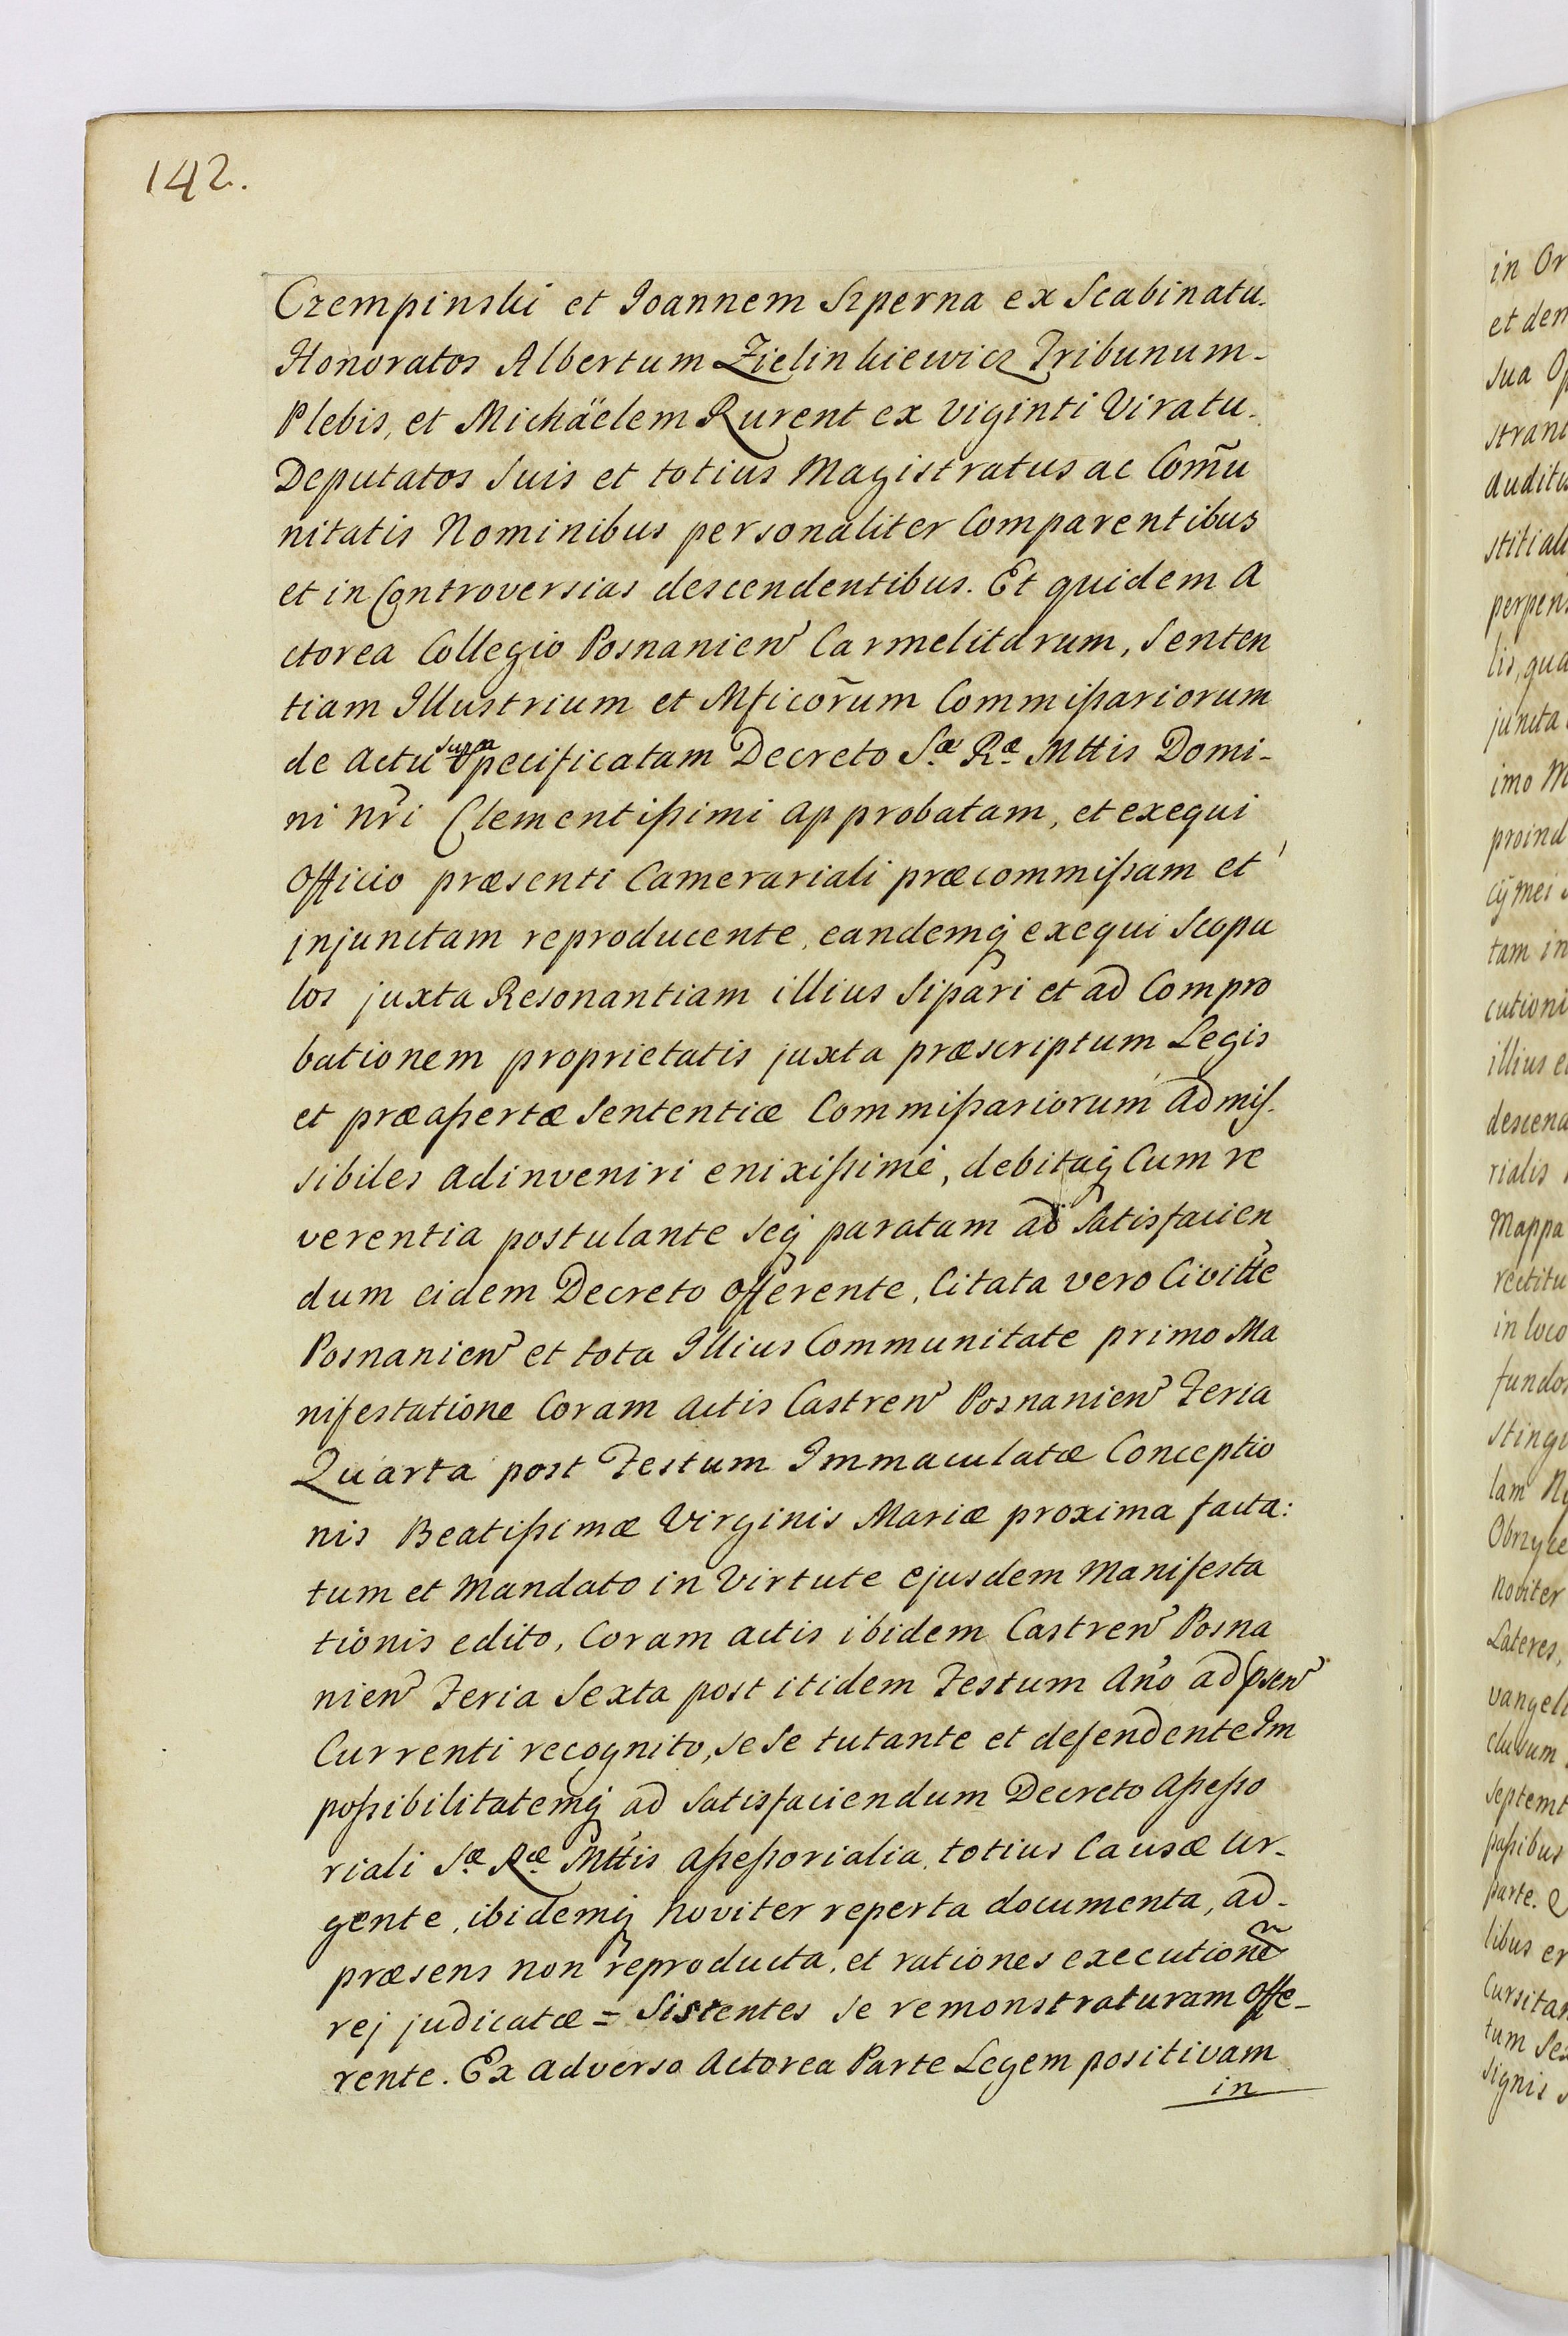 142.
Czempinski et Joannem Szperna ex Scabinatu.
Honoratos Albertum Zielinkiewicz Tribunum-
Plebis, et Michäelem Rurent ex viginti Viratu.
Deputatos Suis et totius Magistratus ac Com̃u
nitatis Nominibus personaliter Comparentibus
et in Controversias descendentibus. Et quidem A
ctorea Collegio Posnanien̄ Carmelitarum, Senten
tiam Illustrium et Mficor̃um Commißariorum
de actu supra specificatam Decreto S.æ R.æ Mttis Domi-
ni nr̃i Clementißimi approbatam, et exequi
Officio præsenti Camerariali præcommißam et
injunctam reproducente, eandemq; exequi Scopu
los juxta Resonantiam illius Sipari et ad Compro
bationem proprietatis juxta præscriptum Legis
et præaßertæ Sententiæ Commißariorum admis-
sibiles adinveniri enixißime, debitaq; Cum re
verentia postulante seq; paratam ad Satisfacien
dum eidem Decreto offerente, Citata vero Civitte
Posnanien̄ et tota Illius Communitate primo Ma
nifestatione Coram actis Castren̄ Posnanien̄ Feria
Quarta post Festum Immaculatæ Conceptio
nis Beatißimæ Virginis Mariæ proxima facta:
tum et Mandato in Virtute ejusdem Manifesta
tionis edito, Coram actis ibidem Castren̄ Posna
nien̄ Feria Sexta post itidem Festum An̄o ad psen̄
Currenti recognito, se Se tutante et defendente Im
poßibilitatemq; ad Satisfaciendum Decreto Aßeßo
riali S.æ R.æ Mttis Aßeßorialia totius Causæ Ur-
gente, ibidemq; noviter reperta documenta, ad-
præsens non reproducta, et rationes execution̄e
rej judicatæ = Sistentes se remonstraturam offe-
rente. Ex adverso Actorea Parte Legem positivam
in
in Or
et dem
sua Op
stran
auditu
perpens
lis, qua
juncta
imo M
proind
tam in
cutioni
illius e
descend
rialis
Mappa
rectitu
in loco
fundos
lam
noviter
Lateres,
vangeli
clusum
septemt
paßibus
parte.
libus er
Cursitan
tum Sex
signis